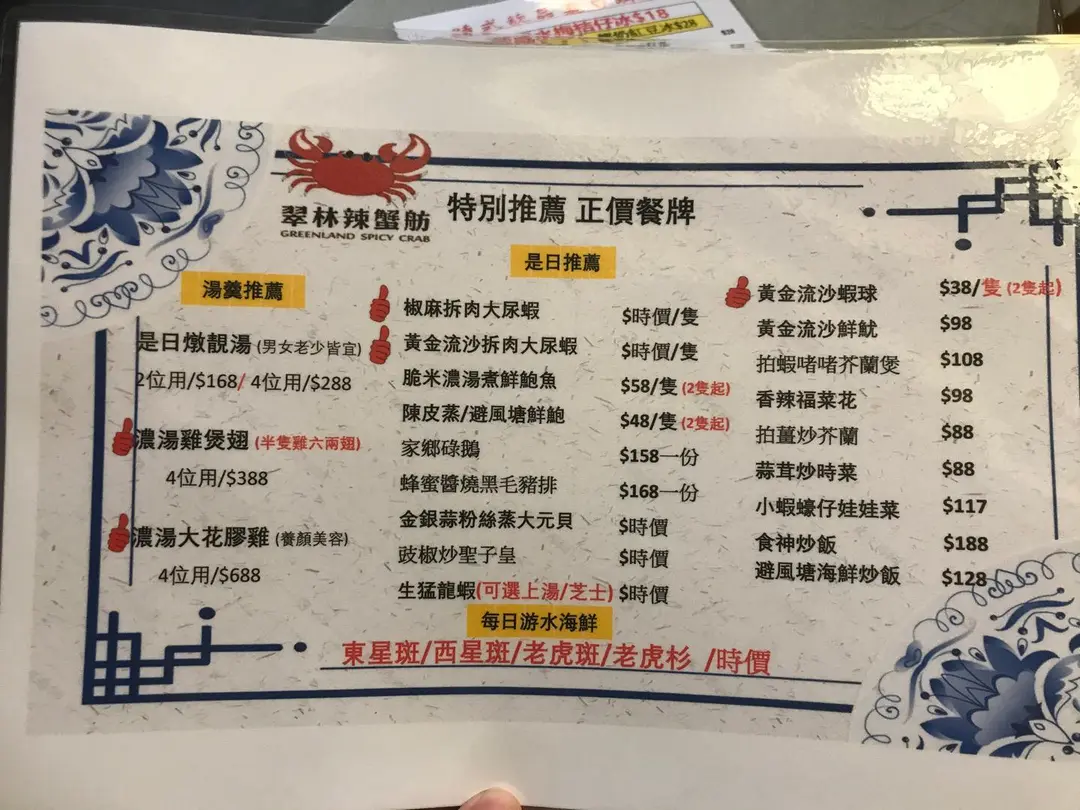 梅桔仔冰$18
紅豆冰$28
翠林辣蟹舫
GREENLAND SPICY CRAB
特別推薦 正價餐牌
湯羹推薦
是日燉靚湯 (男女老少皆宜)
2位用/$168/ 4位用/$288
濃湯雞煲翅 (半隻雞六兩翅)
4位用/$388
濃湯大花膠雞 (養顏美容)
4位用/$688
是日推薦
椒麻拆肉大尿蝦 $時價/隻
黃金流沙拆肉大尿蝦 $時價/隻
脆米濃湯煮鮮鮑魚 $58/隻 (2隻起)
陳皮蒸/避風塘鮮鮑 $48/隻 (2隻起)
家鄉碌鵝 $158一份
蜂蜜醬燒黑毛豬排 $168一份
金銀蒜粉絲蒸大元貝 $時價
豉椒炒聖子皇 $時價
生猛龍蝦(可選上湯/芝士) $時價
黃金流沙蝦球 $38/隻 (2隻起)
黃金流沙鮮魷 $98
拍蝦啫啫芥蘭煲 $108
香辣福菜花 $98
拍薑炒芥蘭 $88
蒜茸炒時菜 $88
小蝦蠔仔娃娃菜 $117
食神炒飯 $188
避風塘海鮮炒飯 $128
每日游水海鮮
東星斑/西星斑/老虎斑/老虎杉 /時價